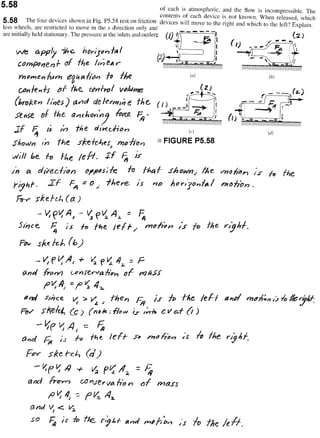 5.58
5.58 The four devices shown in Fig. P5.58 rest on friction-
less wheels, are restricted to move in the x direction only and
are initially held stationary. The pressure at the inlets and outlets
of each is atmospheric, and the flow is incompressible. The
contents of each device is not known. When released, which
devices will move to the right and which to the left? Explain.
(1) (2)
(2) (1)
(a) (b)
(2) (2)
(1) (1)
(c) (d)
FIGURE P5.58
We apply the horizontal
component of the linear
momentum equation to the
contents of the control volume
(broken lines) and determine the
sense of the anchoring force F_A.
If F_A is in the direction
shown in the sketches, motion
will be to the left. If F_A is
in a direction opposite to that shown, the motion is to the
right. If F_A = 0, there is no horizontal motion.
For sketch (a)
-V₁ρV₁A₁ - V₂ρV₂A₂ = F_A
Since F_A is to the left, motion is to the right.
For sketch (b)
-V₁ρV₁A₁ + V₂ρV₂A₂ = F
and from conservation of mass
ρV₁A₁ = ρV₂A₂
and since V₁ > V₂, then F_A is to the left and motion is to the right.
For sketch (c) (note: flow is into CV at (1))
-V₁ρV₁A₁ = F_A
and F_A is to the left so motion is to the right.
For sketch (d)
-V₁ρV₁A + V₂ρV₂A₂ = F_A
and from conservation of mass
ρV₁A₁ = ρV₂A₂
and V₁ < V₂
so F_A is to the right and motion is to the left.